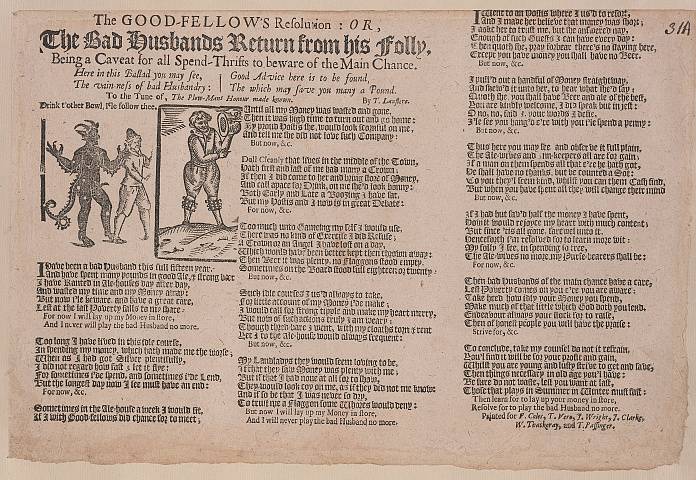 The GOOD-FELLOW'S Resolution : OR,
The Bad Husbands Return from his Folly,
Being a Caveat for all Spend-Thrifts to beware of the Main Chance.
Here in this Ballad you may see,
The vain-ness of bad Husbandry:
Good Advice here is to be found,
The which may save you many a Pound.
To the Tune of, The Plow-Mans Honour made known.
By T. Lanfiere.
Drink t'other Bowl, I'le follow thee.
I Have been a bad Husband this full fifteen year,
And have spent many pounds in good Ale, & strong beer
I have Ranted in Ale-houses day after day,
And wasted my time and my Money away:
But now I'le beware, and have a great care,
Lest at the last Poverty falls to my share:
For now I will lay up my Money in store,
And I never will play the bad Husband no more.
Too long I have lived in this idle course,
In spending my money, which hath made me the worse;
When as I had got Silver plentifully,
I did not regard how fast I let it flye:
For sometimes I'de spend, and sometimes I'de Lend,
But the longest day now I see must have an end:
For now, &c.
Sometimes in the Ale-house a week I would sit,
If I with Good-fellows did chance for to meet;
Until all my Money was wasted and gone,
Then it was high time to turn out and go home:
My proud Hostis she, would look scornful on me,
And tell me she did not love such Company:
But now, &c.
Doll Cleanly that lives in the middle of the Town,
Hath first and last of me had many a Crown;
If then I did come to her and bring store of Money,
And call apace for Drink, on me she'd look bonny:
Both Early and Late a Boozing I have sat,
But my Hostis and I now is in great Debate:
For now, &c.
Too much unto Gameing my self I would use,
There was no kind of Exercise I did Refuse;
A Crown or an Angel I have lost on a day,
Which would have been better kept then thrown away:
Then Beer it was plenty, no Flaggons stood empty,
Sometimes on the Board stood full eighteen or twenty:
But now, &c.
Such idle courses I us'd always to take,
For little account of my Money I'de make;
I would call for strong tipple and make my heart merry,
But now of such actions truly I am weary:
Though then bare I went, with my cloaths torn & rent
Yet I to the Ale-house would always frequent:
But now, &c.
My Landladys they would seem loving to be,
If that they saw Money was plenty with me;
But if that I had none at all for to show,
They would look coy on me, as if they did not me know:
And if so be that I was never so dry,
To trust me a Flaggon some Whores would deny:
But now I will lay up my Money in store,
And I will never play the bad Husband no more.
I Went to an Hostis where I us'd to resort,
And I made her believe that money was short;
I askt her to trust me, but she answered nay,
Enough of such Guests I can have every day:
Then quoth she, pray forbear there's no staying here,
Except you have money you shall have no Beer.
But now, &c.
I pull'd out a handful of Money straightway,
And shew'd it unto her, to hear what she'd say;
Quoth she, you shall have Beer and Ale of the best,
You are kindly welcome, I did speak but in jest:
O no, no, said I, your words I defie,
I'le see you hang'd e're with you I'le spend a penny:
But now, &c.
Thus here you may see and observe it full plain,
The Ale-wives and Inn-keepers all are for gain;
If a man on them spendeth all that e're he hath got,
He shall have no thanks, but be counted a Sot:
To you they'l seem kind, whilst you can them Cash find,
But when you have spent all they will change their mind
But now, &c.
If I had but sav'd half the money I have spent,
Oh it would rejoyce my heart with much content;
But since 'tis all gone, farewel unto it,
Henceforth I am resolved for to learn more wit:
My folly I see, in spending so free,
The Ale-wives no more my Purse-bearers shall be:
For now, &c.
Then bad Husbands of the main chance have a care,
Lest Poverty comes on you e're you are aware;
Take heed how idly your Money you spend,
Make much of that little which God doth you lend.
Endeavour always your stock for to raise,
Then of honest people you will have the praise:
Strive for, &c.
To conclude, take my counsel do not it refrain,
You'l find it will be for your profit and gain,
Whilst you are young and lusty strive to get and save,
Then things necessary in old age you'l have:
Be sure do not waste, lest you want at last,
Those that plays in Summer in Winter must fast:
Then learn for to lay up your money in store,
Resolve for to play the bad Husband no more.
Printed for F. Coles, T. Vere, J. Wright, J. Clarke,
W. Thackeray, and T. Passinger.
31A